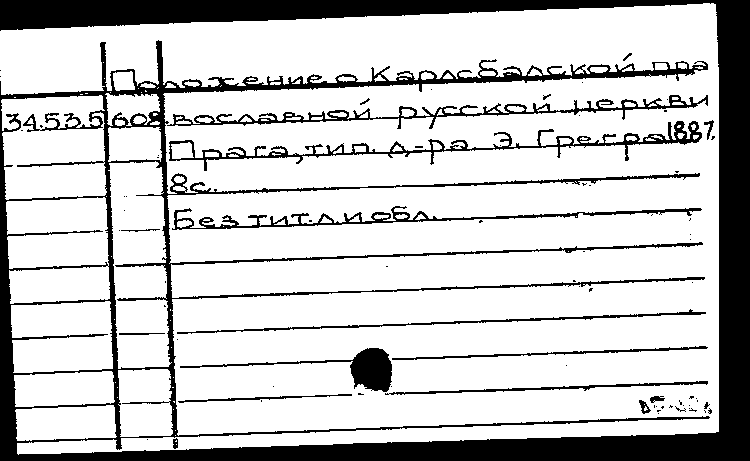 Положение о Карлсбадской пра
34.53.5 608 вославной русской церкви
Прага, тип. д-ра Э. Грегра 1887.
8с.
Без тит. л. и обл.